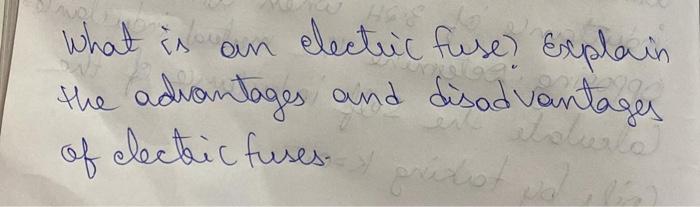 What is an electric fuse? Explain
the advantages and disadvantages
of electric fuses.